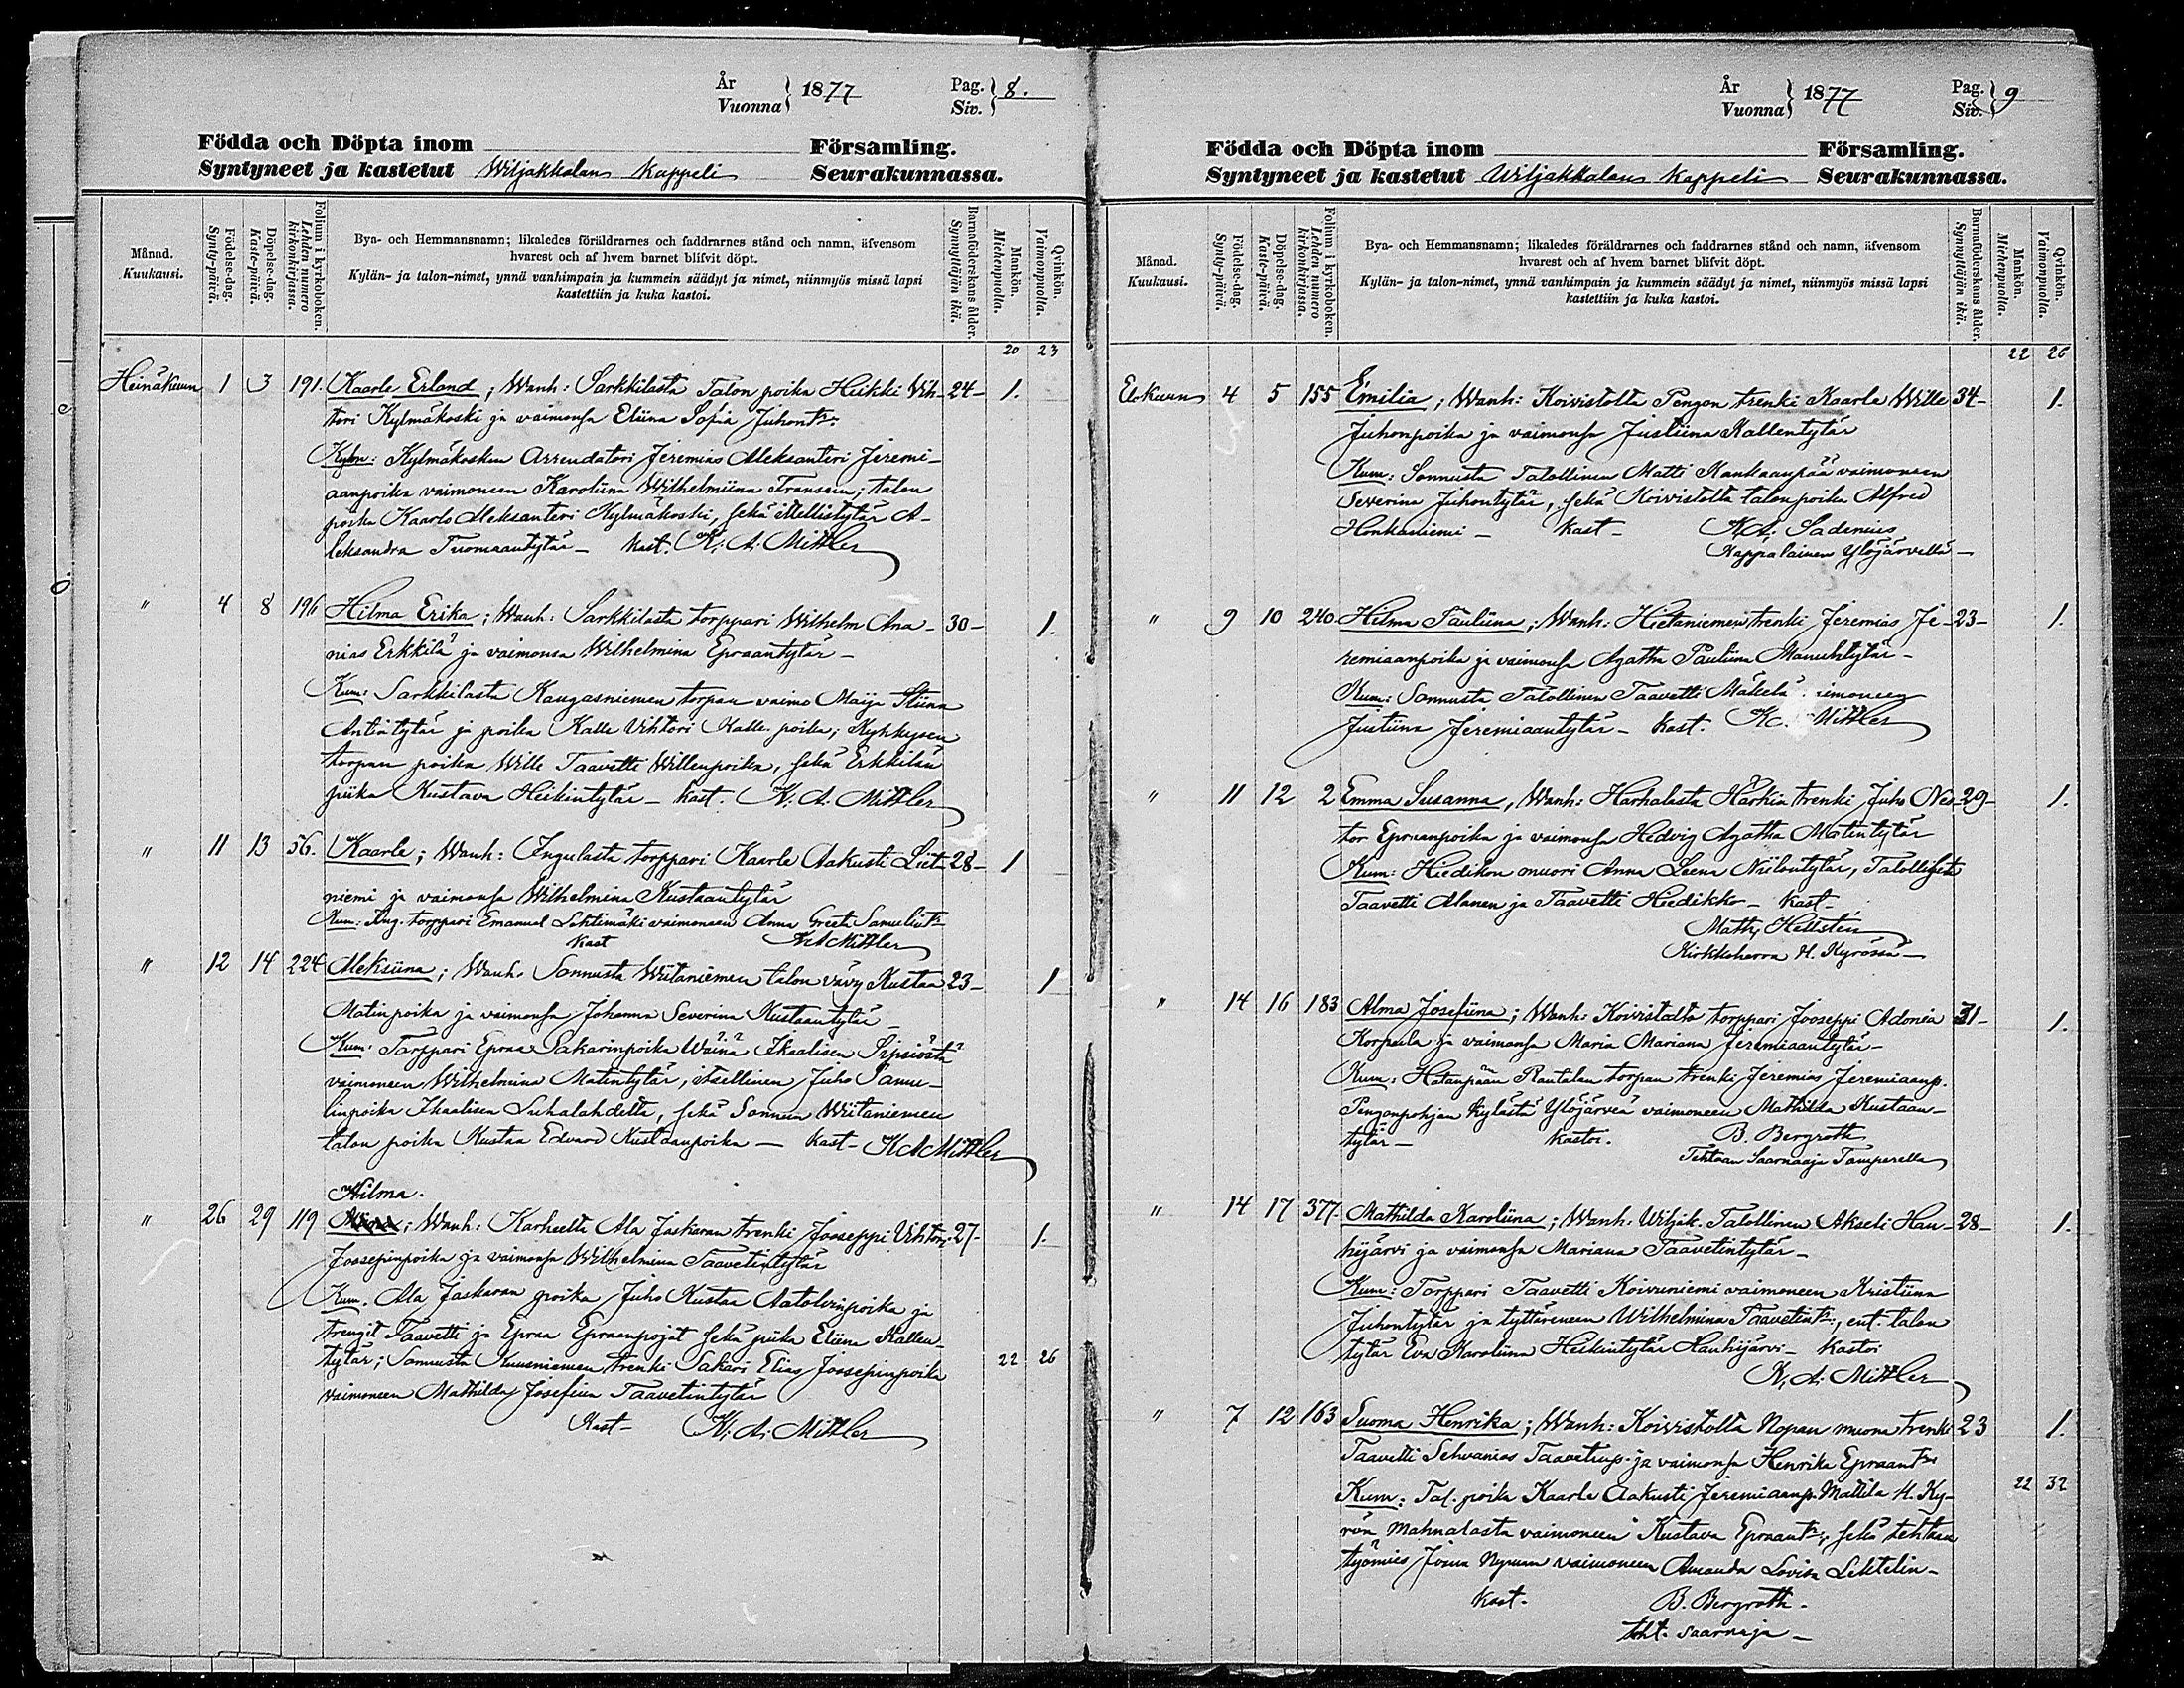 År
Vuonna } 1877
Pag.
Siv. } 8.
Födda och Döpta inom Församling.
Syntyneet ja kastetut Wiljakkalan Kappeli Seurakunnassa.
Månad. Kuukausi.
Födelse-dag. Synty-päivä.
Döpelse-dag. Kaste-päivä.
Folium i kyrkoboken. Lehden numero kirkonkirjassa.
Bya- och Hemmansnamn; likaledes föräldrarnes och faddrarnes stånd och namn, äfvensom
hvarest och af hvem barnet blifvit döpt.
Kylän- ja talon-nimet, ynnä vanhimpain ja kummein säädyt ja nimet, niinmyös missä lapsi
kastettiin ja kuka kastoi.
Barnaföderskans ålder. Synnyttäjän ikä.
Mankön. Miehenpuolta.
Qvinkön. Vaimonpuolta.
20 23
Heinäkuun 1 3 191. Kaarle Erland; Wanh: Sarkkilasta Talon poika Heikki Wih- 24- 1.
tori Kylmäkoski ja vaimonsa Eliina Sofia Juhontr.
Kum: Kylmäkosken Arrendatori Jeremias Aleksanteri Jeremi-
aanpoika vaimoneen Karoliina Wilhelmiina Fransen; talon
poika Kaarlo Aleksanteri Kylmäkoski, sekä Itellistytär A-
leksandra Tuomaantytär - kast. K. A. Mittler
" 4 8 196 Hilma Erika; Wanh: Sarkkilasta torppari Wilhelm Ana- 30- 1.
nias Erkkilä ja vaimonsa Wilhelmina Epraantytär -
Kum: Sarkkilasta Kangasniemen torpan vaimo Maija Stiina
Antintytär ja poika Kalle Vihtori Kalle poika; Kyhkysen
torpan poika Wille Taavetti Willenpoika, sekä Erkkilän
piika Kustava Heikintytär - kast. K. A. Mittler
" 11 13 56. Kaarle; Wanh: Inkulasta torppari Kaarle Aakusti Liet- 28- 1
niemi ja vaimonsa Wilhelmina Kustaantytär
Kum: Ing. torppari Emanuel Lehtimäki vaimoneen Anna Greeta Samulintr
kast K A Mittler
" 12 14 224 Aleksiina; Wanh: Sonnusta Wiitaniemen talon vävy Kustaa 23- 1
Matinpoika ja vaimonsa Johanna Severina Kustaantytär
Kum: Torppari Epraa Sakarinpoika Wäinä Ikaalisen Sipsiöstä
vaimoneen Wilhelmina Matintytär, itsellinen Juho Samu-
linpoika Ikaalisen Luhalahdelta, sekä Sonnun Wiitaniemen
talon poika Kustaa Edvard Kustaanpoika - kast - K A Mittler
Hilma.
" 26 29 119 ; Wanh: Karheelta Ala Jaskaran trenki Jooseppi Vihtori 27- 1.
Joosepinpoika ja vaimonsa Wilhelmina Taavetintytär
Kum. Ala Jaskaran poika Juho Kustaa Aatolvinpoika ja
trengit Taavetti ja Epraa Epraanpojat sekä piika Eliina Kallen-
tytär; Sonnusta Kuusniemen trenki Sakari Elias Joosepinpoika 22 26
vaimoneen Mathilda Josefina Taavetintytär
Kast - K. A. Mittler
År
Vuonna } 1877
Pag.
Siv. } 9
Födda och Döpta inom Församling.
Syntyneet ja kastetut Wiljakkalan Kappeli Seurakunnassa.
Månad. Kuukausi.
Födelse-dag. Synty-päivä.
Döpelse-dag. Kaste-päivä.
Folium i kyrkoboken. Lehden numero kirkonkirjassa.
Bya- och Hemmansnamn; likaledes föräldrarnes och faddrarnes stånd och namn, äfvensom
hvarest och af hvem barnet blifvit döpt.
Kylän- ja talon-nimet, ynnä vanhimpain ja kummein säädyt ja nimet, niinmyös missä lapsi
kastettiin ja kuka kastoi.
Barnaföderskans ålder. Synnyttäjän ikä.
Mankön. Miehenpuolta.
Qvinkön. Vaimonpuolta.
22 26
Elokuun 4 5 155 Emilia; Wanh: Koivistolta Pengon trenki Kaarle Wille 34- 1.
Juhonpoika ja vaimonsa Justiina Kallentytär
Kum: Sonnusta Talollinen Matti Kankaanpää vaimoneen
Severina Juhontytär, sekä Koivistolta talon poika Alfred
Honkaniemi - kast - K. A. Sadenius
Kappalainen Ylöjärvellä -
" 9 10 240. Hilma Pauliina; Wanh: Hietaniemen trenki Jeremias Je- 23- 1.
remiaanpoika ja vaimonsa Agatha Pauliina Manuhtytär -
Kum: Sonnusta Talollinen Taavetti Mäkelä imoneen
Justiina Jeremiaantytär - kast. K. Mittler
" 11 12 2 Emma Susanna, Wanh: Harhalasta Härkiä trenki Juho Nes- 29- 1.
tor Epraanpoika ja vaimonsa Hedvig Agatha Matintytär
Kum: Hiedikon muori Anna Leena Niilontytär, Talolliset
Taavetti Alanen ja Taavetti Hiedikko - kast -
Math. Hellstén
Kirkkoherra H. Kyrössä -
" 14 16 183 Alma Josefiina; Wanh: Koivistolta torppari Jooseppi Adonia 31- 1.
Korpula ja vaimonsa Maria Mariana Jeremiaantytär -
Kum: Hatanpään Rantalan torpan trenki Jeremias Jeremiaanp.
Pengonpohjan kylästä Ylöjärveä vaimoneen Mathilda Kustaan-
tytär - kastoi. B. Bergroth
Tehtaan Saarnaaja Tampereella
" 14 17 377. Mathilda Karoliina; Wanh: Wiljak. Talollinen Akseli Han- 28- 1.
hijärvi ja vaimonsa Mariana Taavetintytär -
Kum: Torppari Taavetti Koivuniemi vaimoneen Kristiina
Juhontytär ja tyttäreneen Wilhelmina Taavetintr:, ent. talon
tytär Eva Karoliina Heikintytär Hanhijärvi - kastoi
K. A. Mittler
" 7 12 163 Suoma Henrika; Wanh: Koivistolta Nopan muona trenki 23 1.
Taavetti Sehvanias Taavetinp. ja vaimonsa Henrika Epraantr
Kum: Tal. poika Kaarle Aakusti Jeremiaanp. Mattila H. Ky- 22 32
rön Mahnalasta vaimoneen Kustava Epraantr:, sekä tehtaan
työmies Nyman vaimoneen Amanda Lovisa Lehtelin -
kast. B. Bergroth.
teht. saarnaja -